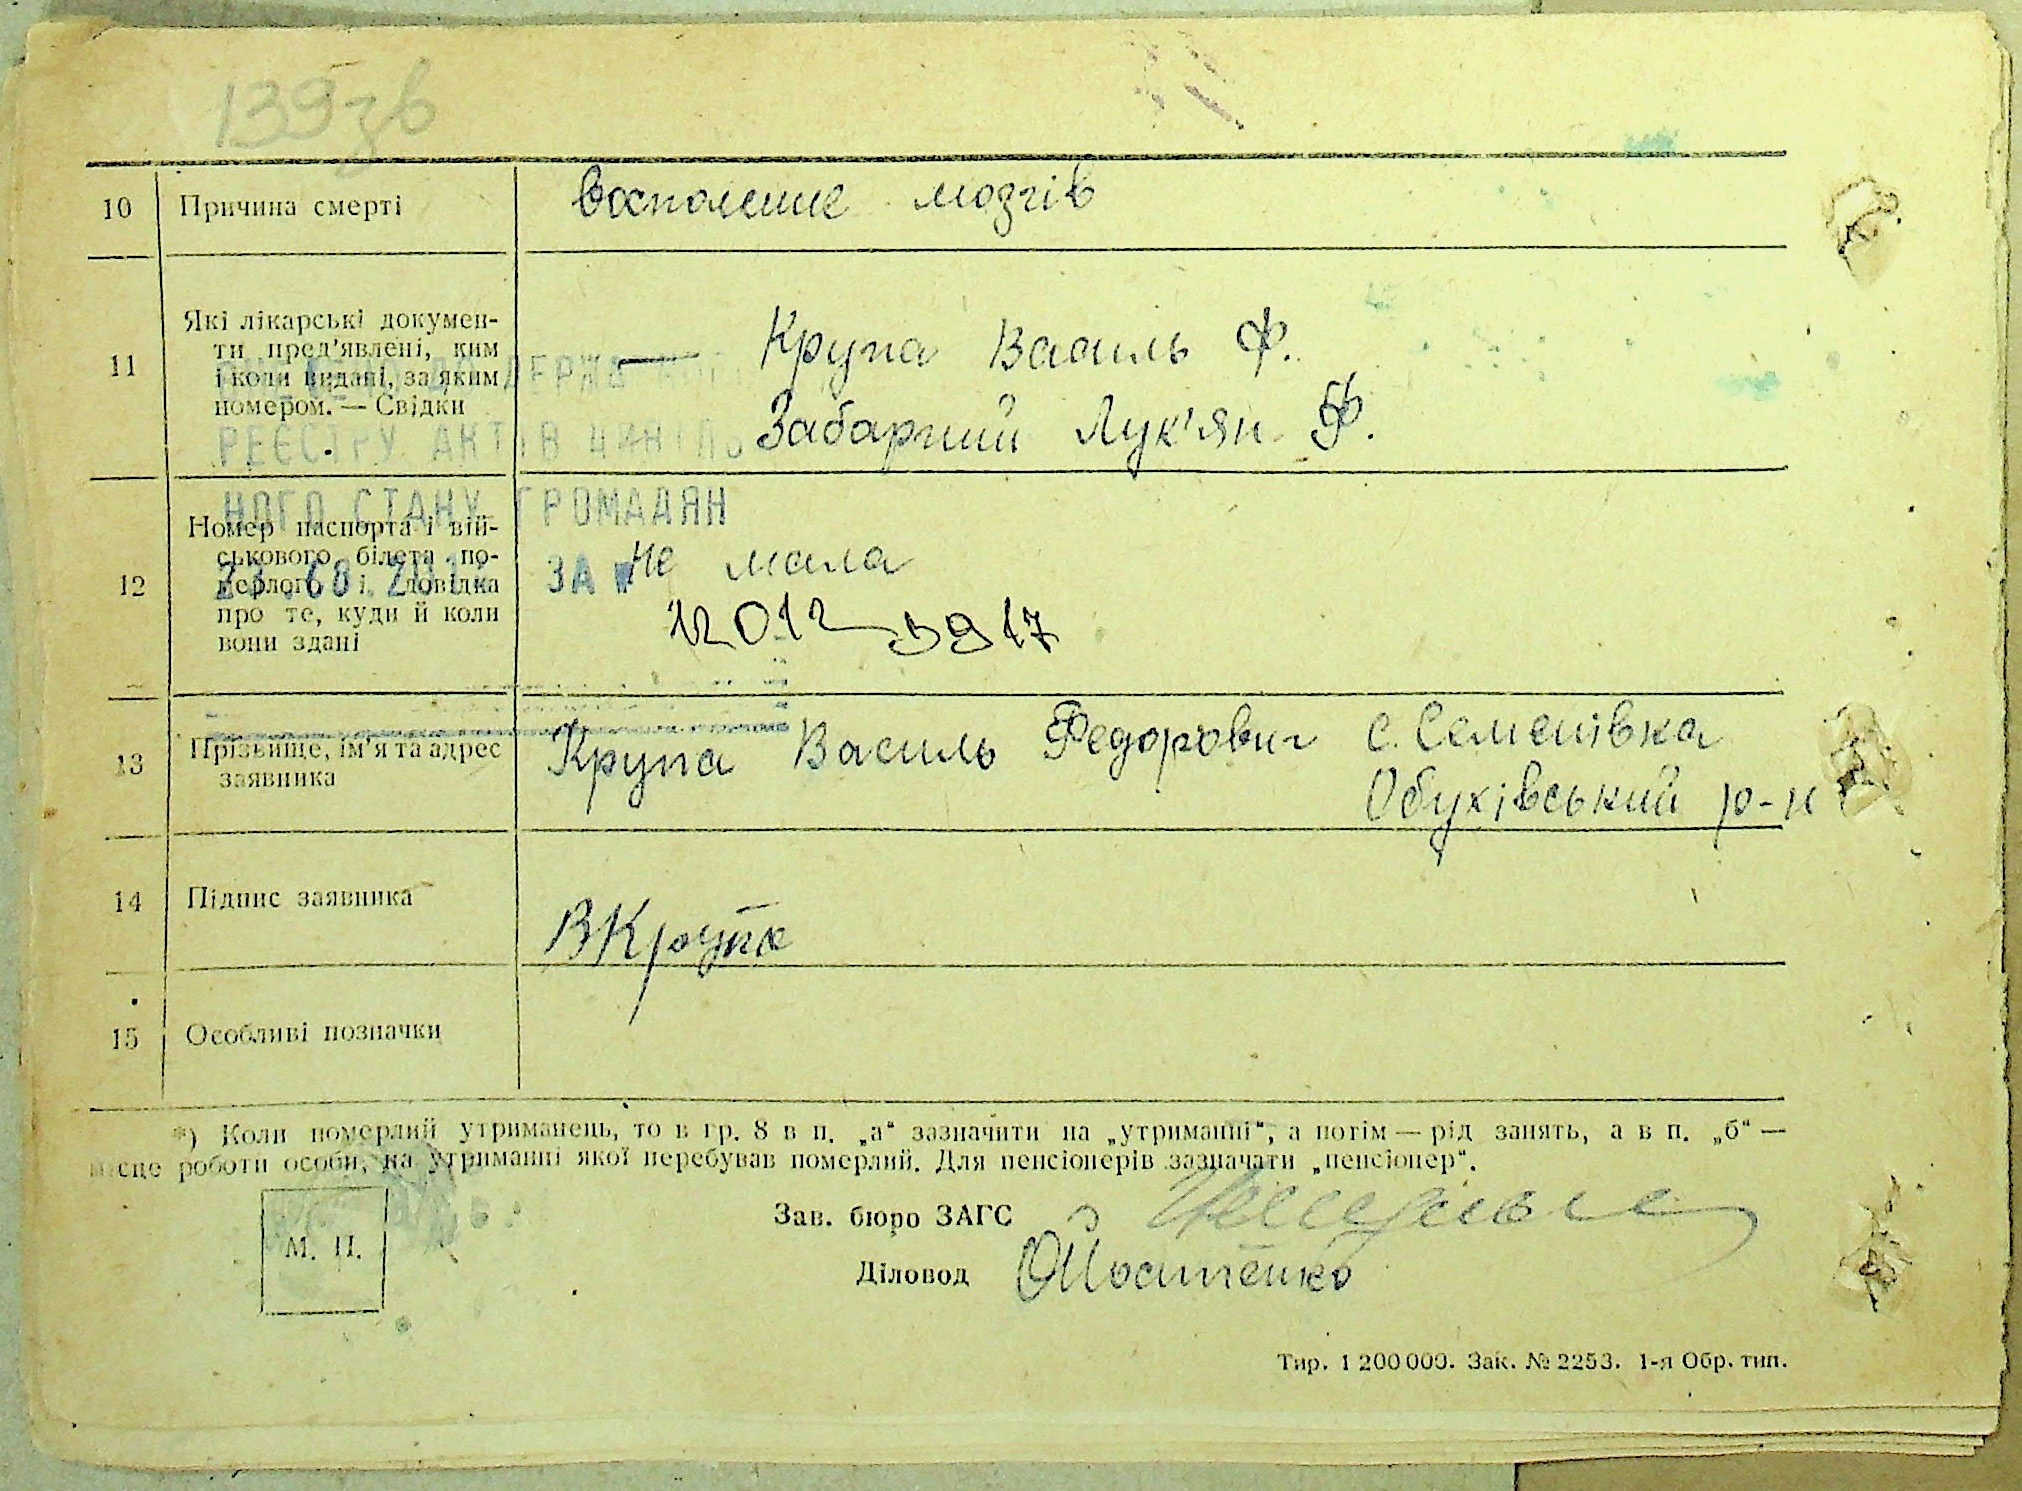 139зв
10 Причина смерті восполение мозгів
11 Які лікарські докумен-
ти пред'явлені, ким
і коли видані, за яким
номером. — Свідки
— Крупа Василь Ф.
Забарний Лук'ян Ф.
РЕЄСТРУ АКТІВ ЦИВІЛЬ
НОГО СТАНУ ГРОМАДЯН
ЗА №
12 Номер паспорта і вій-
ськового білета по-
мерлого і довідка
про те, куди й коли
вони здані
Не мала
13 Прізвище, ім'я та адрес
заявника
Крупа Василь Федорович с. Семенівка
Обухівський р-н
14 Підпис заявника ВКрупа
15 Особливі позначки
*) Коли померлий утриманець, то в гр. 8 в п. „а" зазначити на „утриманні", а потім — рід занять, а в п. „б" —
місце роботи особи, на утриманні якої перебував померлий. Для пенсіонерів зазначати „пенсіонер".
М. П.
Зав. бюро ЗАГС
Діловод
Тир. 1 200 000. Зак. № 2253. 1-я Обр. тип.